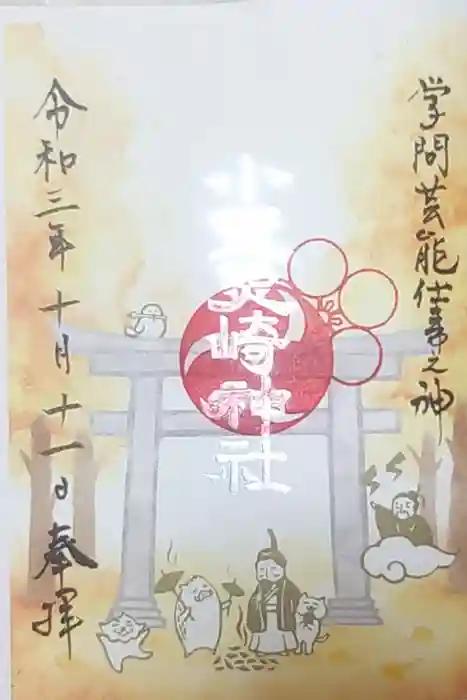 学問芸能仕事之神
小 崎神社
令和三年十月十一日奉拝